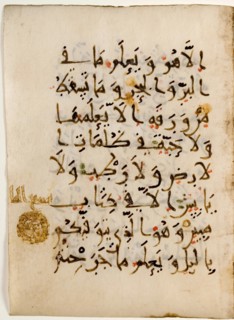 إلا هو ويعلم ما في
البر والبحر وما تسقط
من ورقة إلا يعلمها
ولا حبة في ظلمات ا
لارض ولا رطب ولا
يابس إلا في كتاب
مبين وهو الذي يتوفيكم
باليل ويعلم ما جرحتم